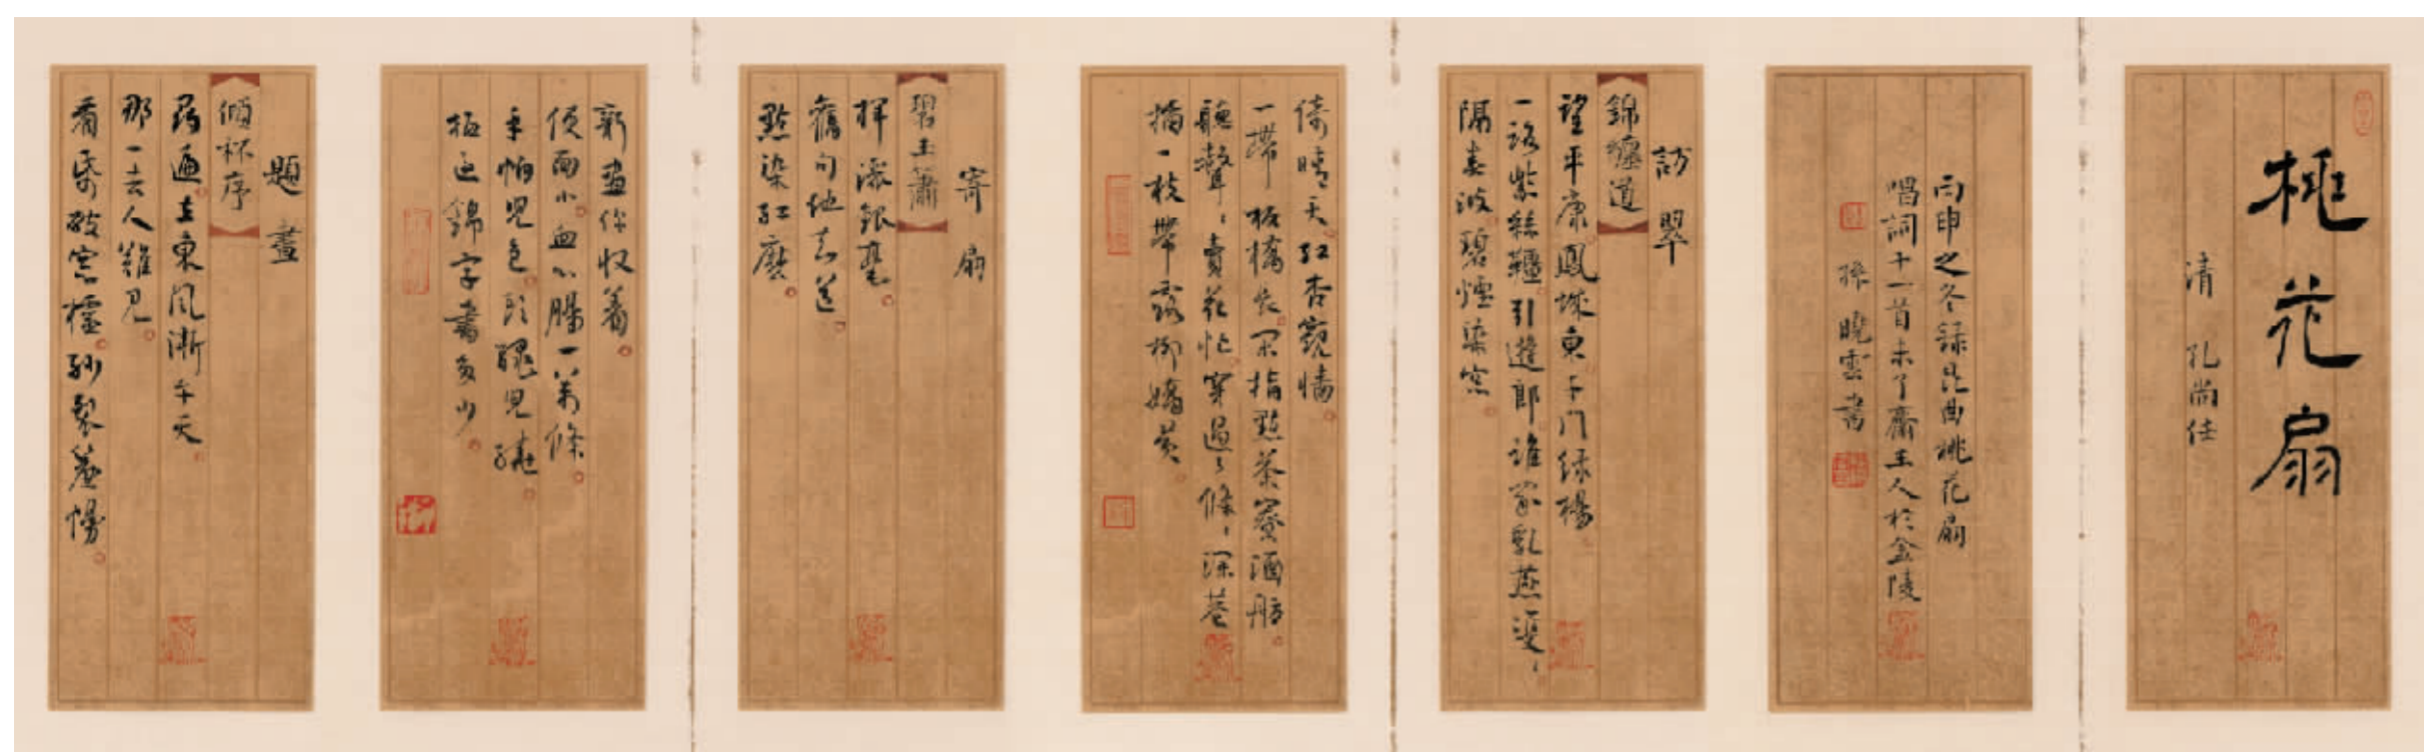 桃花扇
清 孔尚任
丙申之冬録昆曲桃花扇
唱詞十一首未了齋主人於金陵
孫曉雲書
訪翠
錦纏道
望平康鳳城東千門緑楊
一路紫絲韁引遊郎誰家乳燕雙〻
隔春波碧煙染窗
倚晴天紅杏窺墻
一帶板橋長閑指點茶寮酒舫
聽聲〻賣花忙穿過了條〻深巷
插一枝帶露柳嬌黃
寄扇
碧玉簫
揮灑銀毫
舊句他知道
點染紅麽
新畫你收着
便面小血心腸一萬條
手帕兒包頭繩兒繞
抵過錦字書多少
題畫
傾杯序
尋遍立東風漸午天
那一去人難見
看紙破窗櫺紗裂簾幔